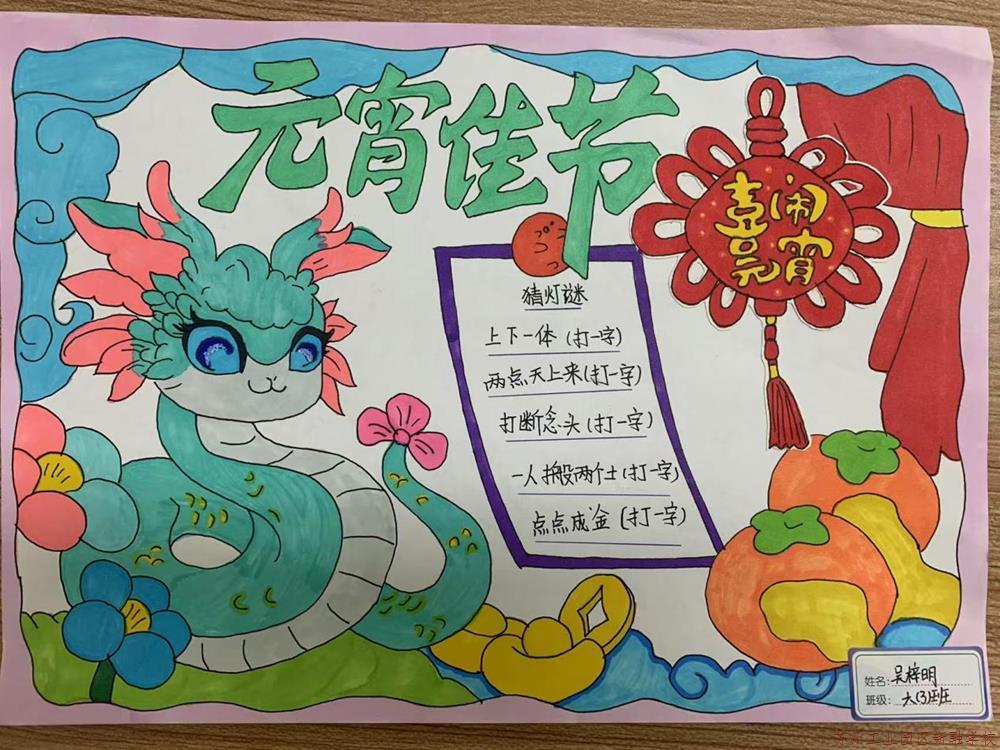 元宵佳节
喜闹
元宵
猜灯谜
上下一体(打一字)
两点天上来(打一字)
打断念头(打一字)
一人搬两个土(打一字)
点点成金(打一字)
姓名:吴梓明
班级:大(3)班